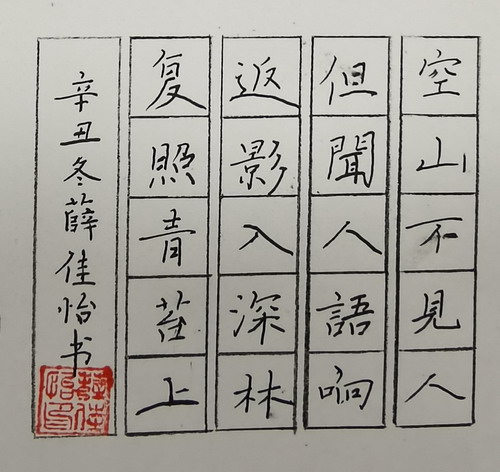 空山不見人
但聞人語响
返影入深林
复照青苔上
辛丑冬薛佳怡书
薛佳怡印